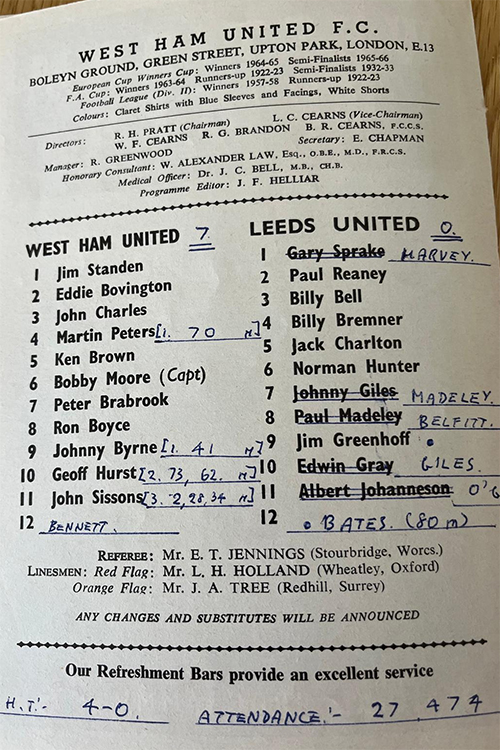 WEST HAM UNITED F.C.
BOLEYN GROUND, GREEN STREET, UPTON PARK, LONDON, E.13
European Cup Winners Cup: Winners 1964-65 Semi-Finalists 1965-66
F.A. Cup: Winners 1963-64 Runners-up 1922-23 Semi-Finalists 1932-33
Football League (Div. II): Winners 1957-58 Runners-up 1922-23
Colours: Claret Shirts with Blue Sleeves and Facings, White Shorts
Directors: R. H. PRATT (Chairman) L. C. CEARNS (Vice-Chairman)
W. F. CEARNS R. G. BRANDON B. R. CEARNS, F.C.C.S.
Manager: R. GREENWOOD Secretary: E. CHAPMAN
Honorary Consultant: W. ALEXANDER LAW, Esq., O.B.E., M.D., F.R.C.S.
Medical Officer: Dr. J. C. BELL, M.B., CH.B.
Programme Editor: J. F. HELLIAR
WEST HAM UNITED 7.
1 Jim Standen
2 Eddie Bovington
3 John Charles
4 Martin Peters [1. 70 M]
5 Ken Brown
6 Bobby Moore (Capt)
7 Peter Brabrook
8 Ron Boyce
9 Johnny Byrne [1. 41 M]
10 Geoff Hurst [2. 73, 62. M]
11 John Sissons [3. 2, 28, 34 M]
12 BENNETT.
LEEDS UNITED 0.
1 Gary Sprake HARVEY.
2 Paul Reaney
3 Billy Bell
4 Billy Bremner
5 Jack Charlton
6 Norman Hunter
7 Johnny Giles MADELEY.
8 Paul Madeley BELFITT.
9 Jim Greenhoff •
10 Edwin Gray GILES.
11 Albert Johanneson
12 • BATES. (80 m)
REFEREE: Mr. E. T. JENNINGS (Stourbridge, Worcs.)
LINESMEN: Red Flag: Mr. L. H. HOLLAND (Wheatley, Oxford)
Orange Flag: Mr. J. A. TREE (Redhill, Surrey)
ANY CHANGES AND SUBSTITUTES WILL BE ANNOUNCED
Our Refreshment Bars provide an excellent service
H.T:- 4-0. ATTENDANCE:- 27 474